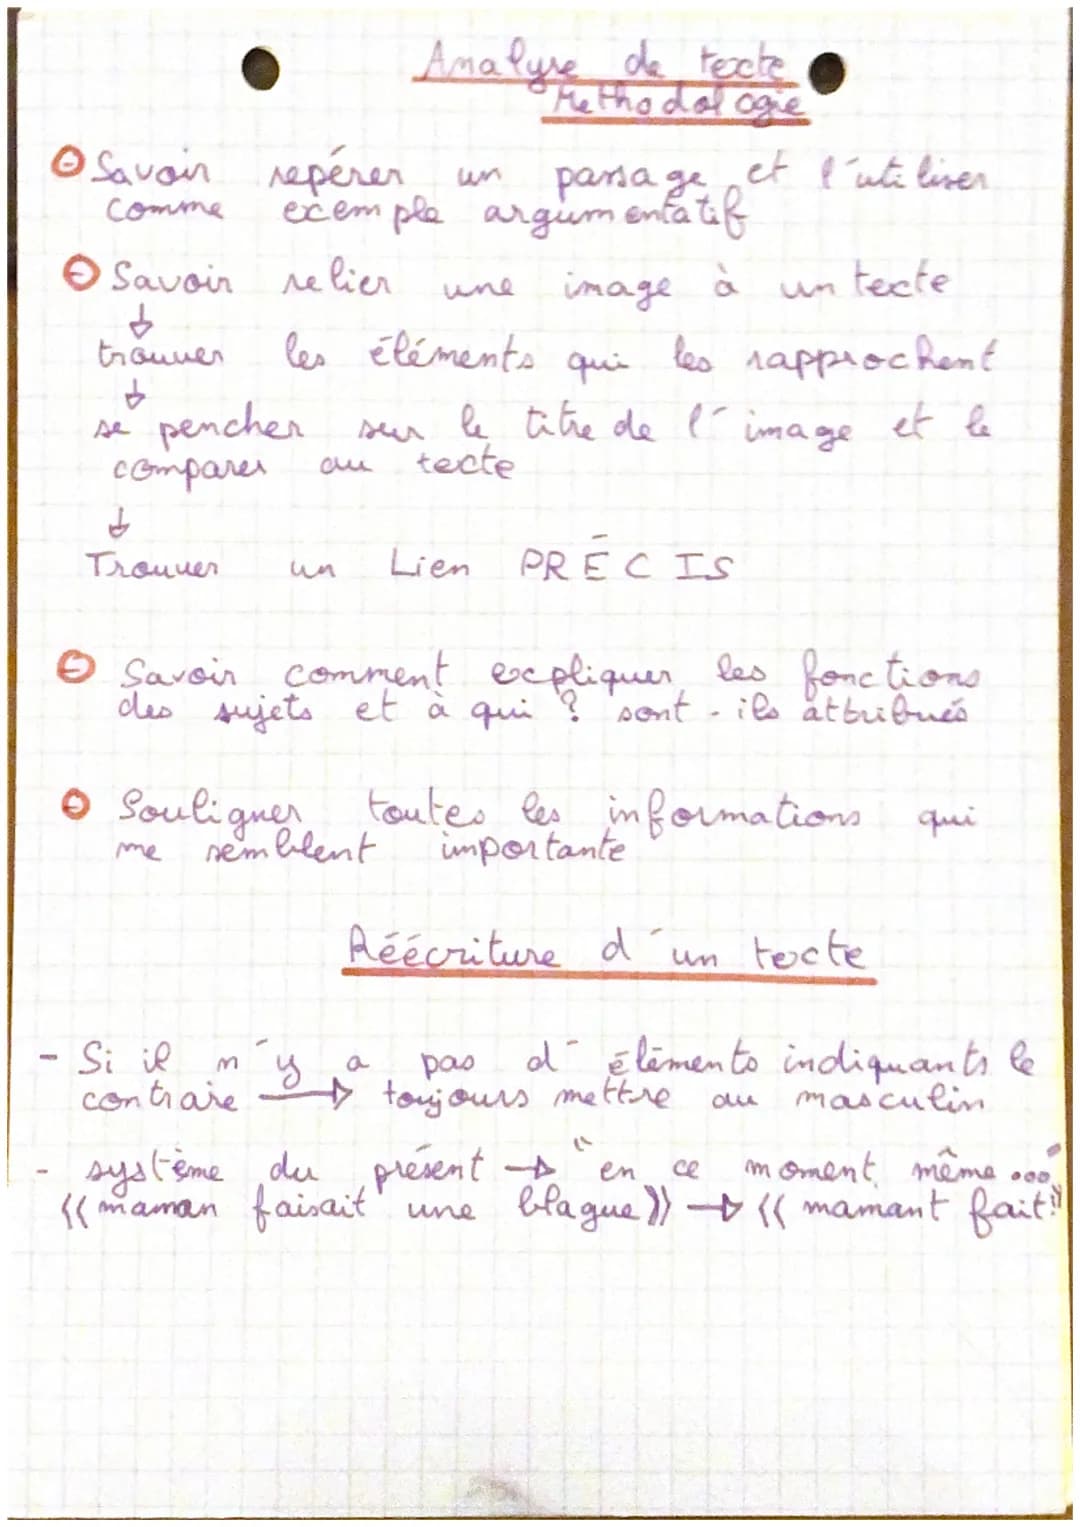 Analyse de texte
Methodologie
Savoir repérer un passage et l'utiliser
comme exemple argumentatif
Savoir relier une image à un texte
↓
trouver les éléments qui les rapprochent
↓
se pencher sur le titre de l'image et le
comparer au texte
↓
Trouver un Lien PRÉCIS
Savoir comment expliquer les fonctions
des sujets et à qui ? sont-ils attribués
Souligner toutes les informations qui
me semblent importante
Réécriture d'un texte
- Si il n'y a pas d'éléments indiquants le
contraire → toujours mettre au masculin
- système du présent → "en ce moment même..."
<<maman faisait une blague>> → <<mamant fait!>>